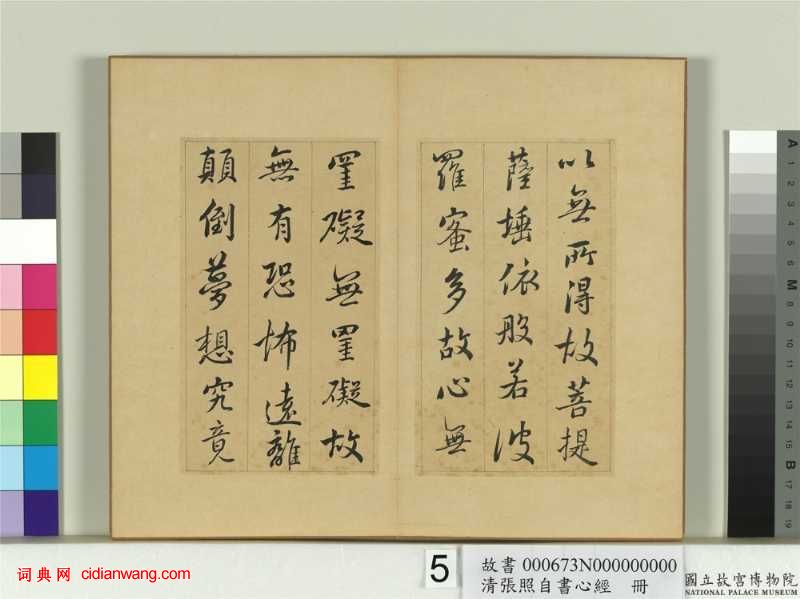 以無所得故菩提
薩埵依般若波
羅蜜多故心無
罣礙無罣礙故
無有恐怖遠離
顛倒夢想究竟
A 1 2 3 4 5 6 M 8 9 10 11 12 13 14 15 B 17 18 19
5
故書 000673N000000000
清張照自書心經 冊
國立故宮博物院
NATIONAL PALACE MUSEUM
词典网 cidianwang.com